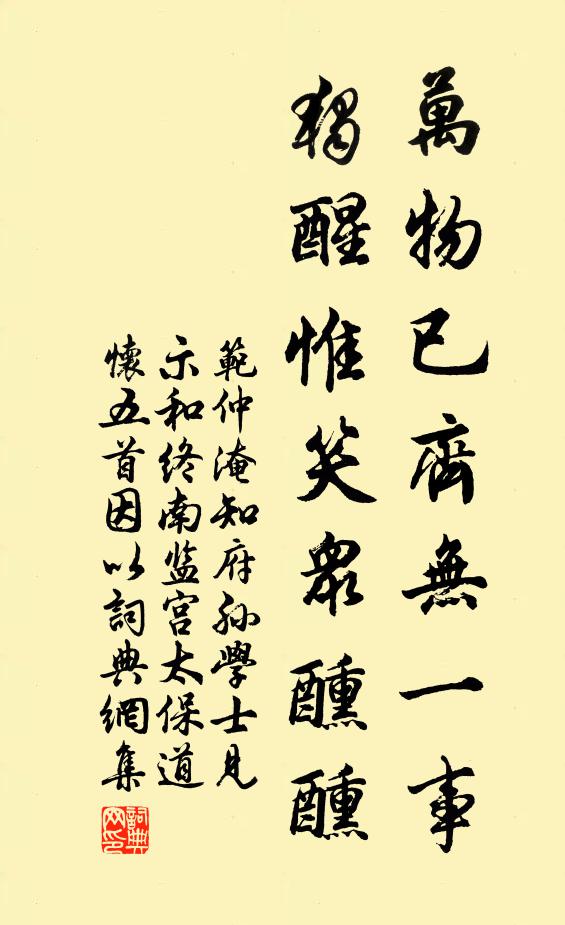 萬物已齊無一事
獨醒惟笑衆醺醺
範仲淹知府孙學士見
示和终南监宫太保道
懷五首因以詞典網集
詞典
网印